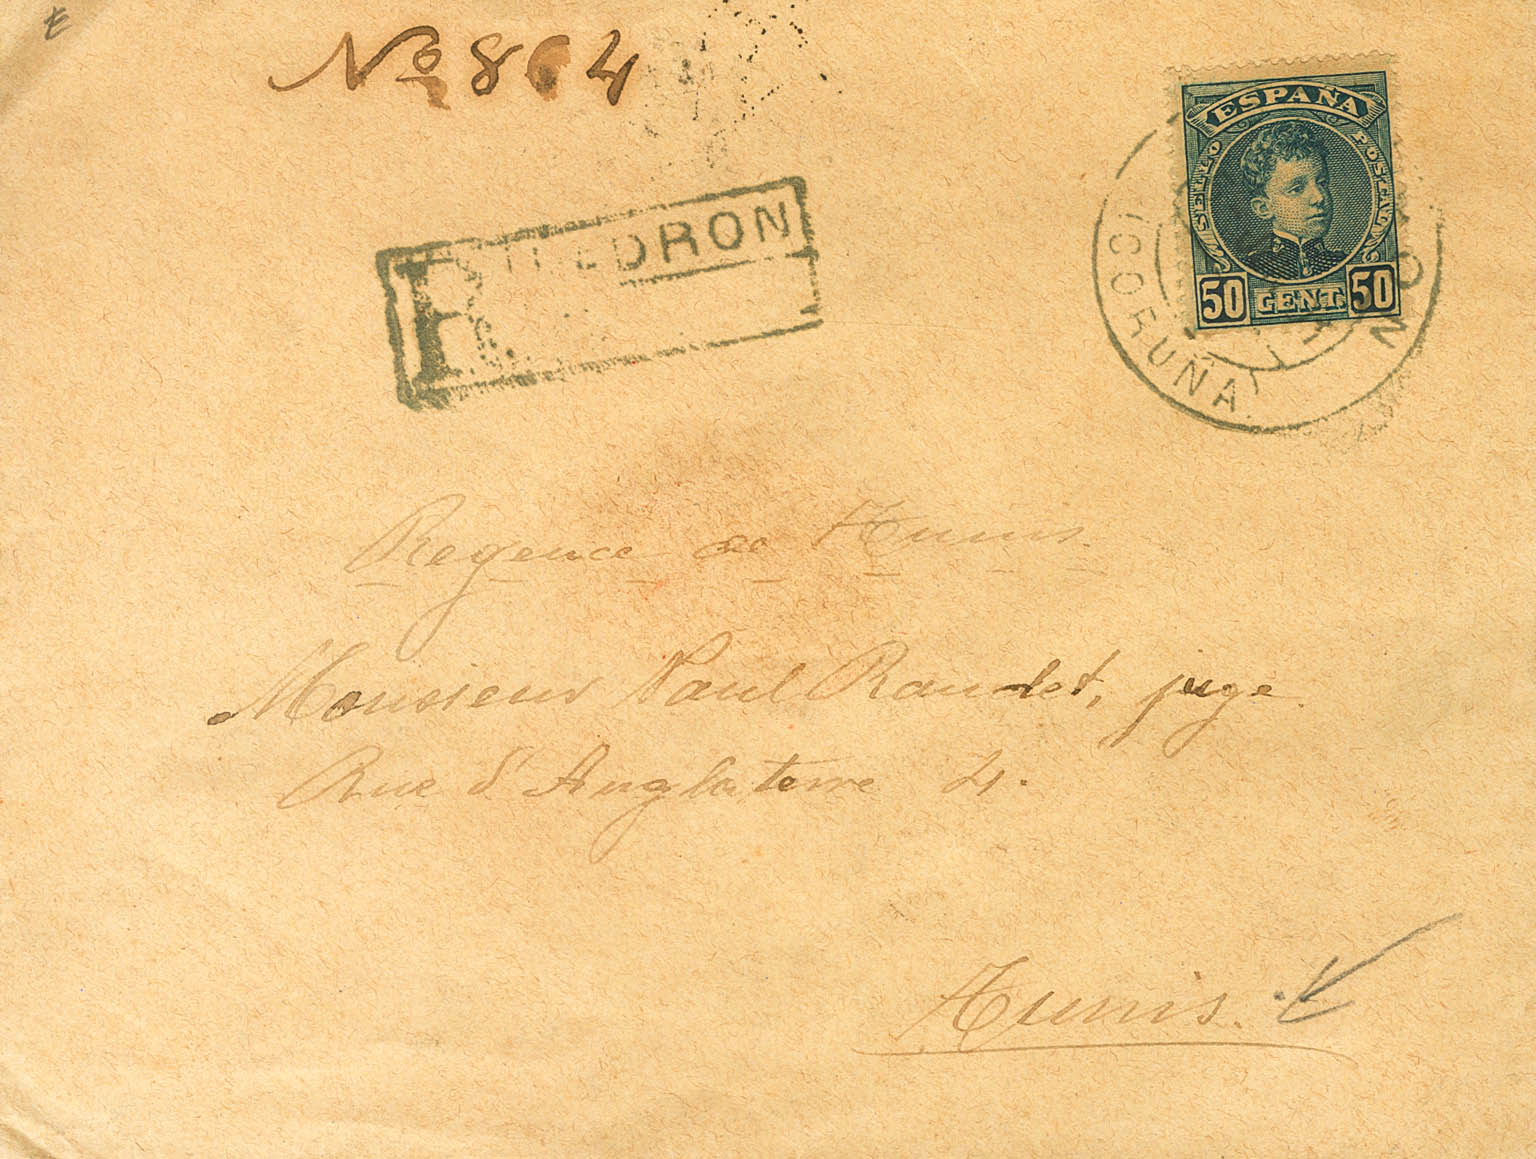 Nº 864
ESPAÑA
SELLO POSTAL
50 CENT. 50
R
(CORUÑA)
Regence de Tunis.
Monsieur Paul Raudot, juge
Rue d'Angleterre 4.
Tunis.